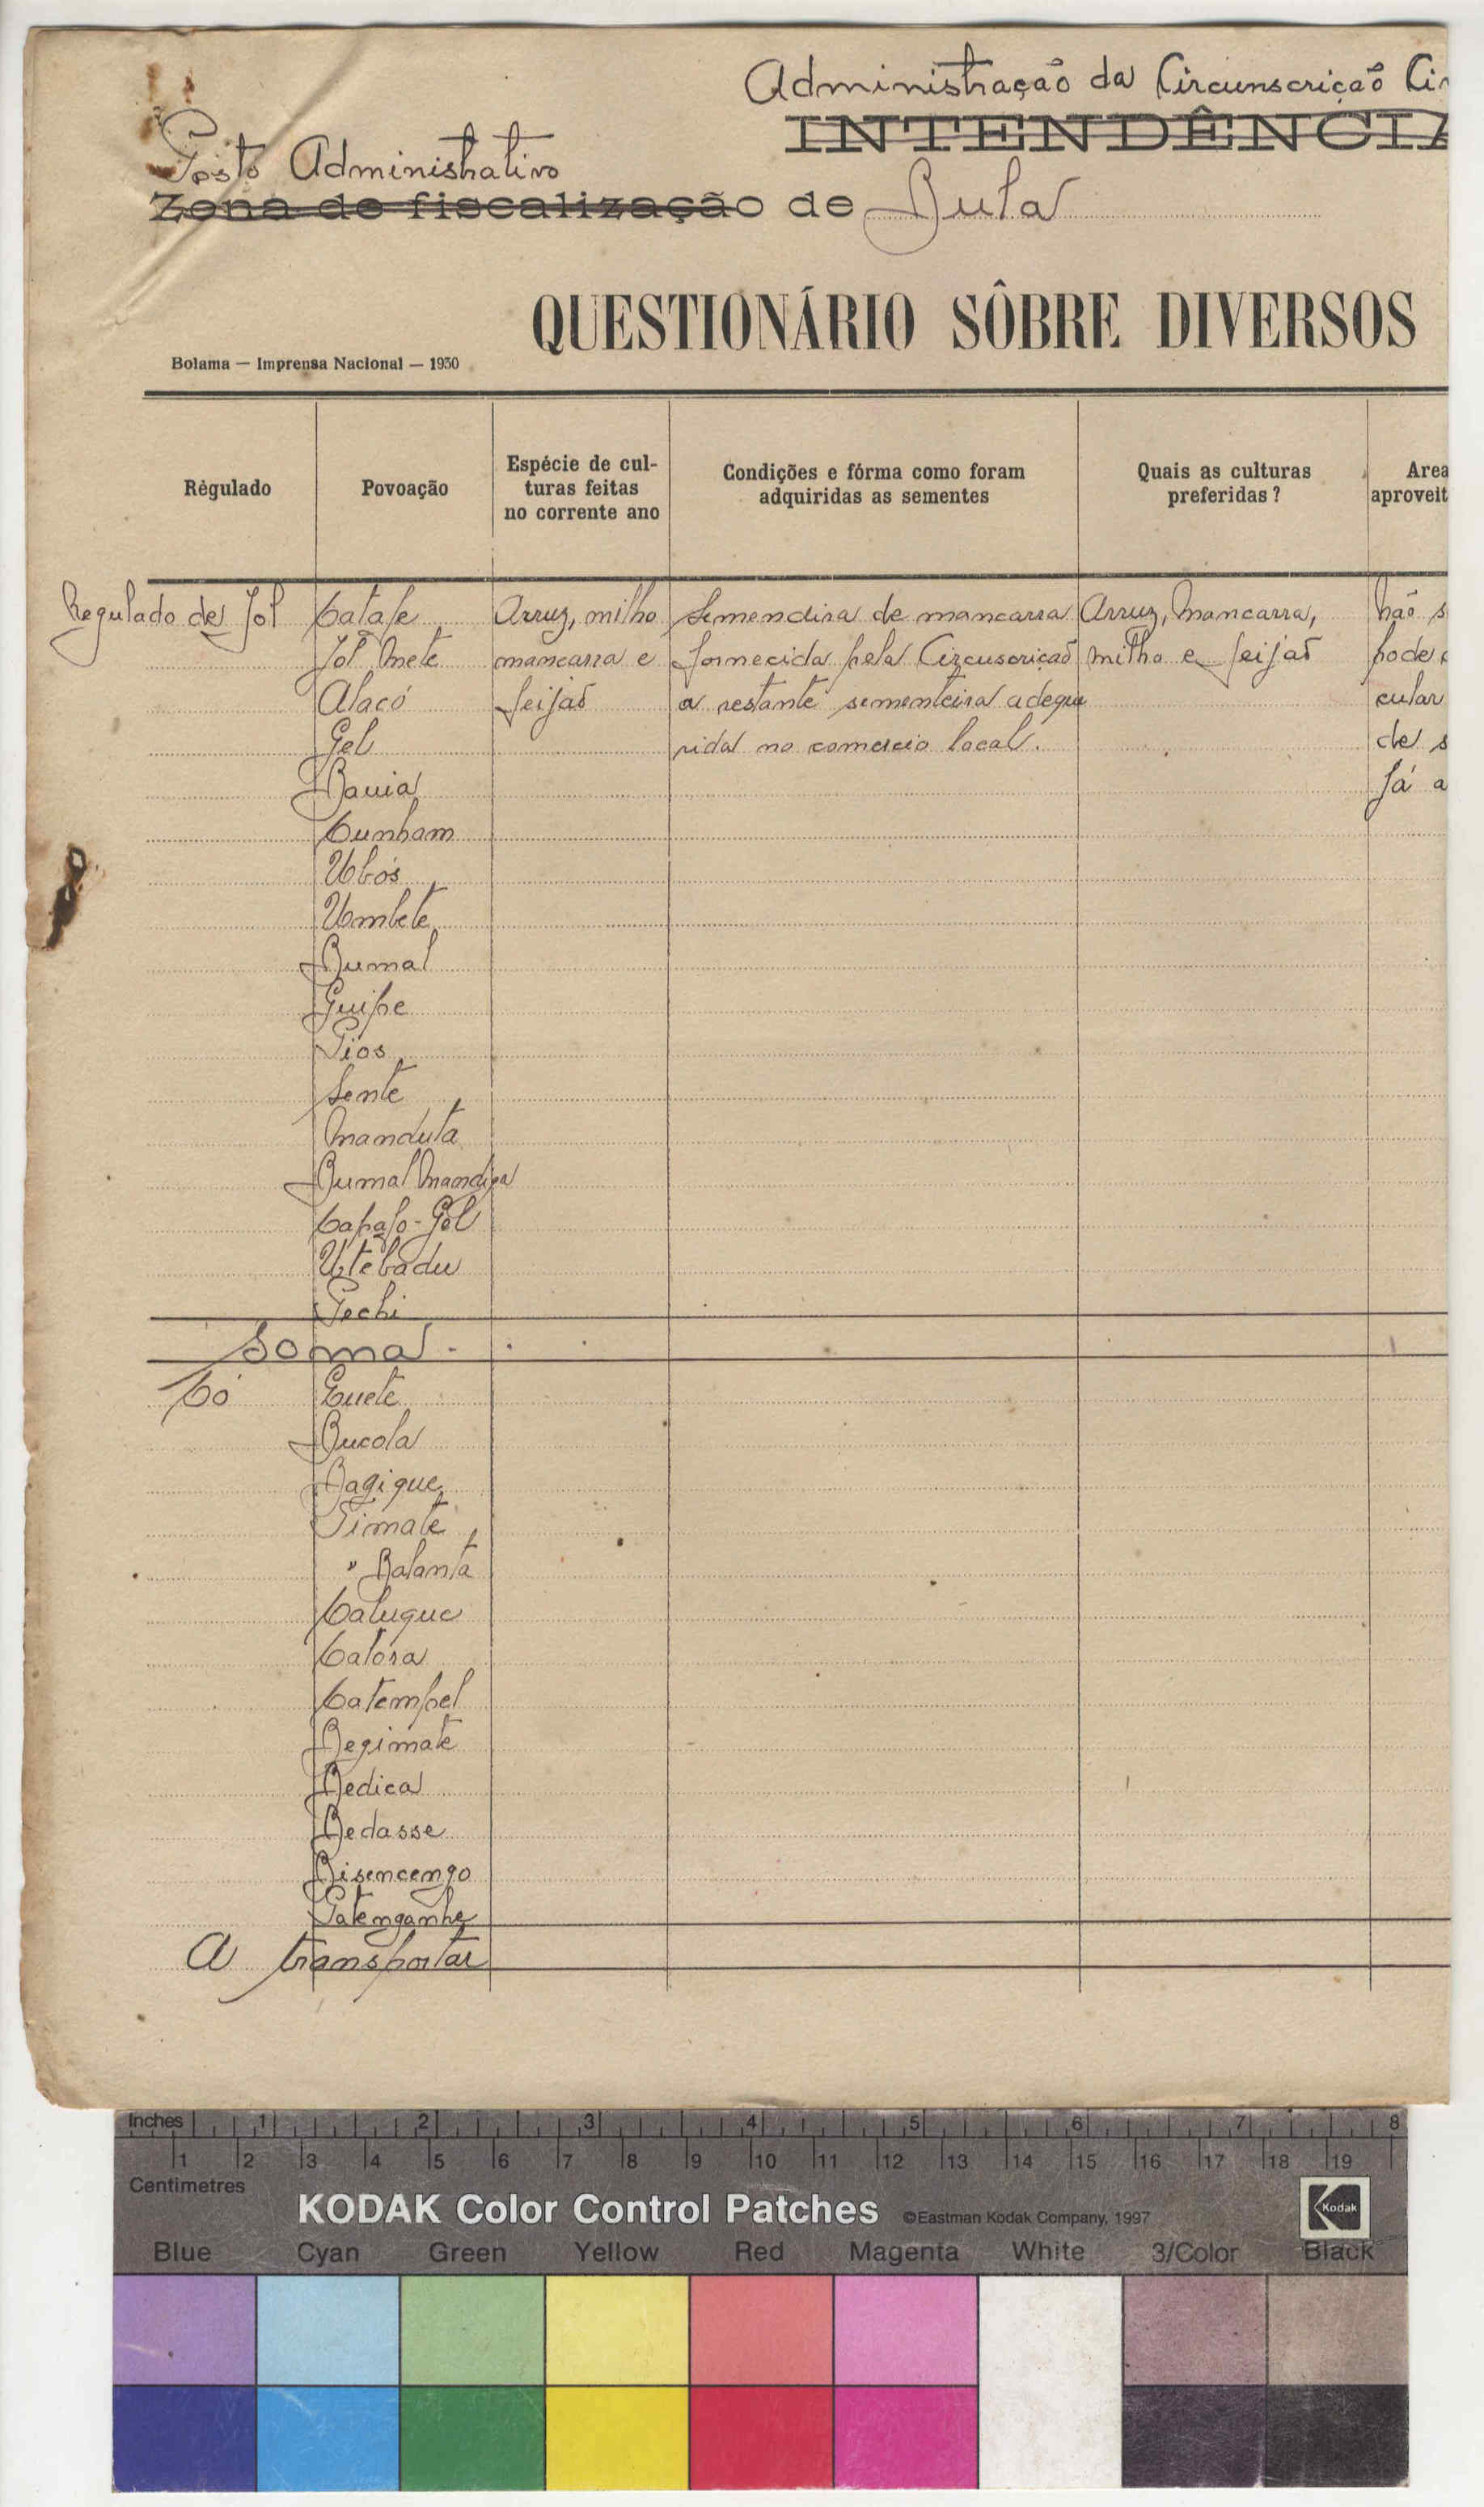 Administração da Circunscrição Ci
INTENDÊNCIA
Posto Administrativo
Zona de fiscalização de Bula
QUESTIONÁRIO SÔBRE DIVERSOS
Bolama — Imprensa Nacional — 1930
Régulado Povoação Espécie de cul- turas feitas no corrente ano Condições e fórma como foram adquiridas as sementes Quais as culturas preferidas? Area aproveit
Regulado de Jol Catafe Arruz, milho Semendira de mancarra Arruz, Mancarra, Não s
Jol Mete mancarra e fornecida pela Circuscrição milho e feijão pode
Alacó feijão a restante sementeira adequi cular
Gel rida no comercio local. de s
Bauia Já a
Cunham
Ubós
Umbete
Bumal
Guipe
Pios
Sente
Manduta
Bumal Mandiga
Capafo-Gol
Utebadu
Pechi
Soma.
Có Cuete
Bucola
Bagique
Timate
" Balanta
Caluque
Catora
Catempel
Begimate
Bedica
Bedasse
Bisencengo
Patenganhe
A transportar
Inches 1 2 3 4 5 6 7 8
1 2 3 4 5 6 7 8 9 10 11 12 13 14 15 16 17 18 19
Centimetres
KODAK Color Control Patches ©Eastman Kodak Company, 1997 Kodak
Blue Cyan Green Yellow Red Magenta White 3/Color Black